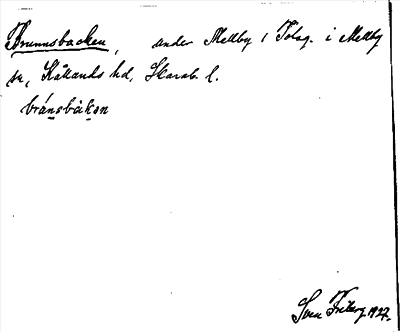 Brunnsbacken, under Mellby 1 Tolsg. i Mellby
sn, Kållands hd, Skarab. l.
brúnsbàkan
Sven Friberg 1927.